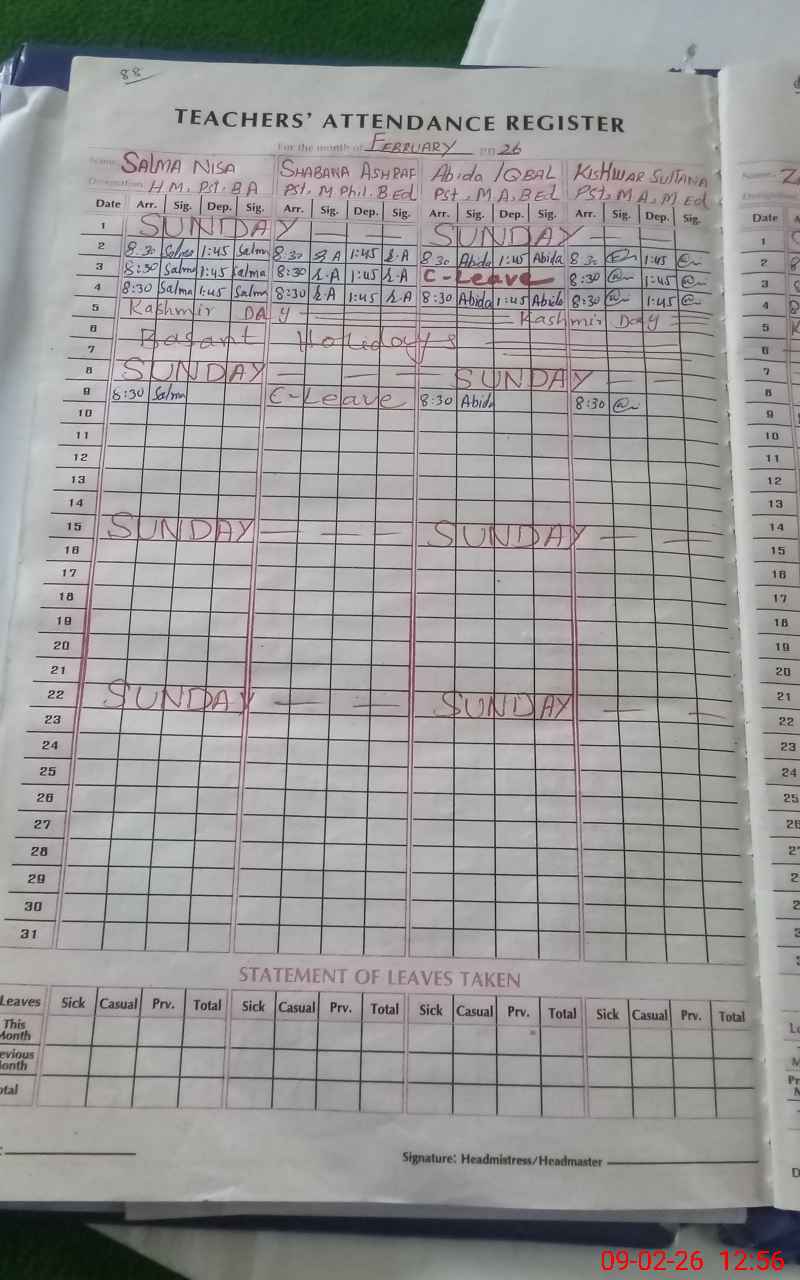 88
TEACHERS' ATTENDANCE REGISTER
For the month of FEBRUARY 2026
Name: SALMA NISA SHABANA ASHRAF Abida IQBAL KISHWAR SULTANA
Designation: H M, PST, B A PST, M Phil, B.Ed PST, M A, B Ed PST, M A, M Ed
Date Arr. Sig. Dep. Sig. Arr. Sig. Dep. Sig. Arr. Sig. Dep. Sig. Arr. Sig. Dep. Sig. Date
1 SUNDAY — — — SUNDAY — — 1
2 8.30 Salma 1:45 Salma 8:30 S.A 1:45 S.A 8.30 Abida 1:45 Abida 8.30 1:45 2
3 8:30 Salma 1:45 Salma 8:30 S.A 1:45 S.A C-Leave 8:30 1:45 3
4 8:30 Salma 1:45 Salma 8:30 S.A 1:45 S.A 8:30 Abida 1:45 Abida 8:30 1:45 4
5 Kashmir DAY Kashmir Day 5
6 Basant Holidays 6
7 7
8 SUNDAY — — — SUNDAY — — 8
9 8:30 Salma C-Leave 8:30 Abida 8:30 9
10 10
11 11
12 12
13 13
14 14
15 SUNDAY — — — SUNDAY — — 15
16 16
17 17
18 18
19 19
20 20
21 21
22 SUNDAY — — SUNDAY — — 22
23 23
24 24
25 25
26
27
28
29
30
31
STATEMENT OF LEAVES TAKEN
Leaves Sick Casual Prv. Total Sick Casual Prv. Total Sick Casual Prv. Total Sick Casual Prv. Total
This
Month
Signature: Headmistress/Headmaster
09-02-26 12:56